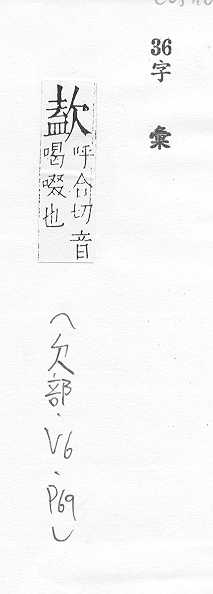 36
字彙
呼合切音
喝啜也
(欠部.V6.P69)